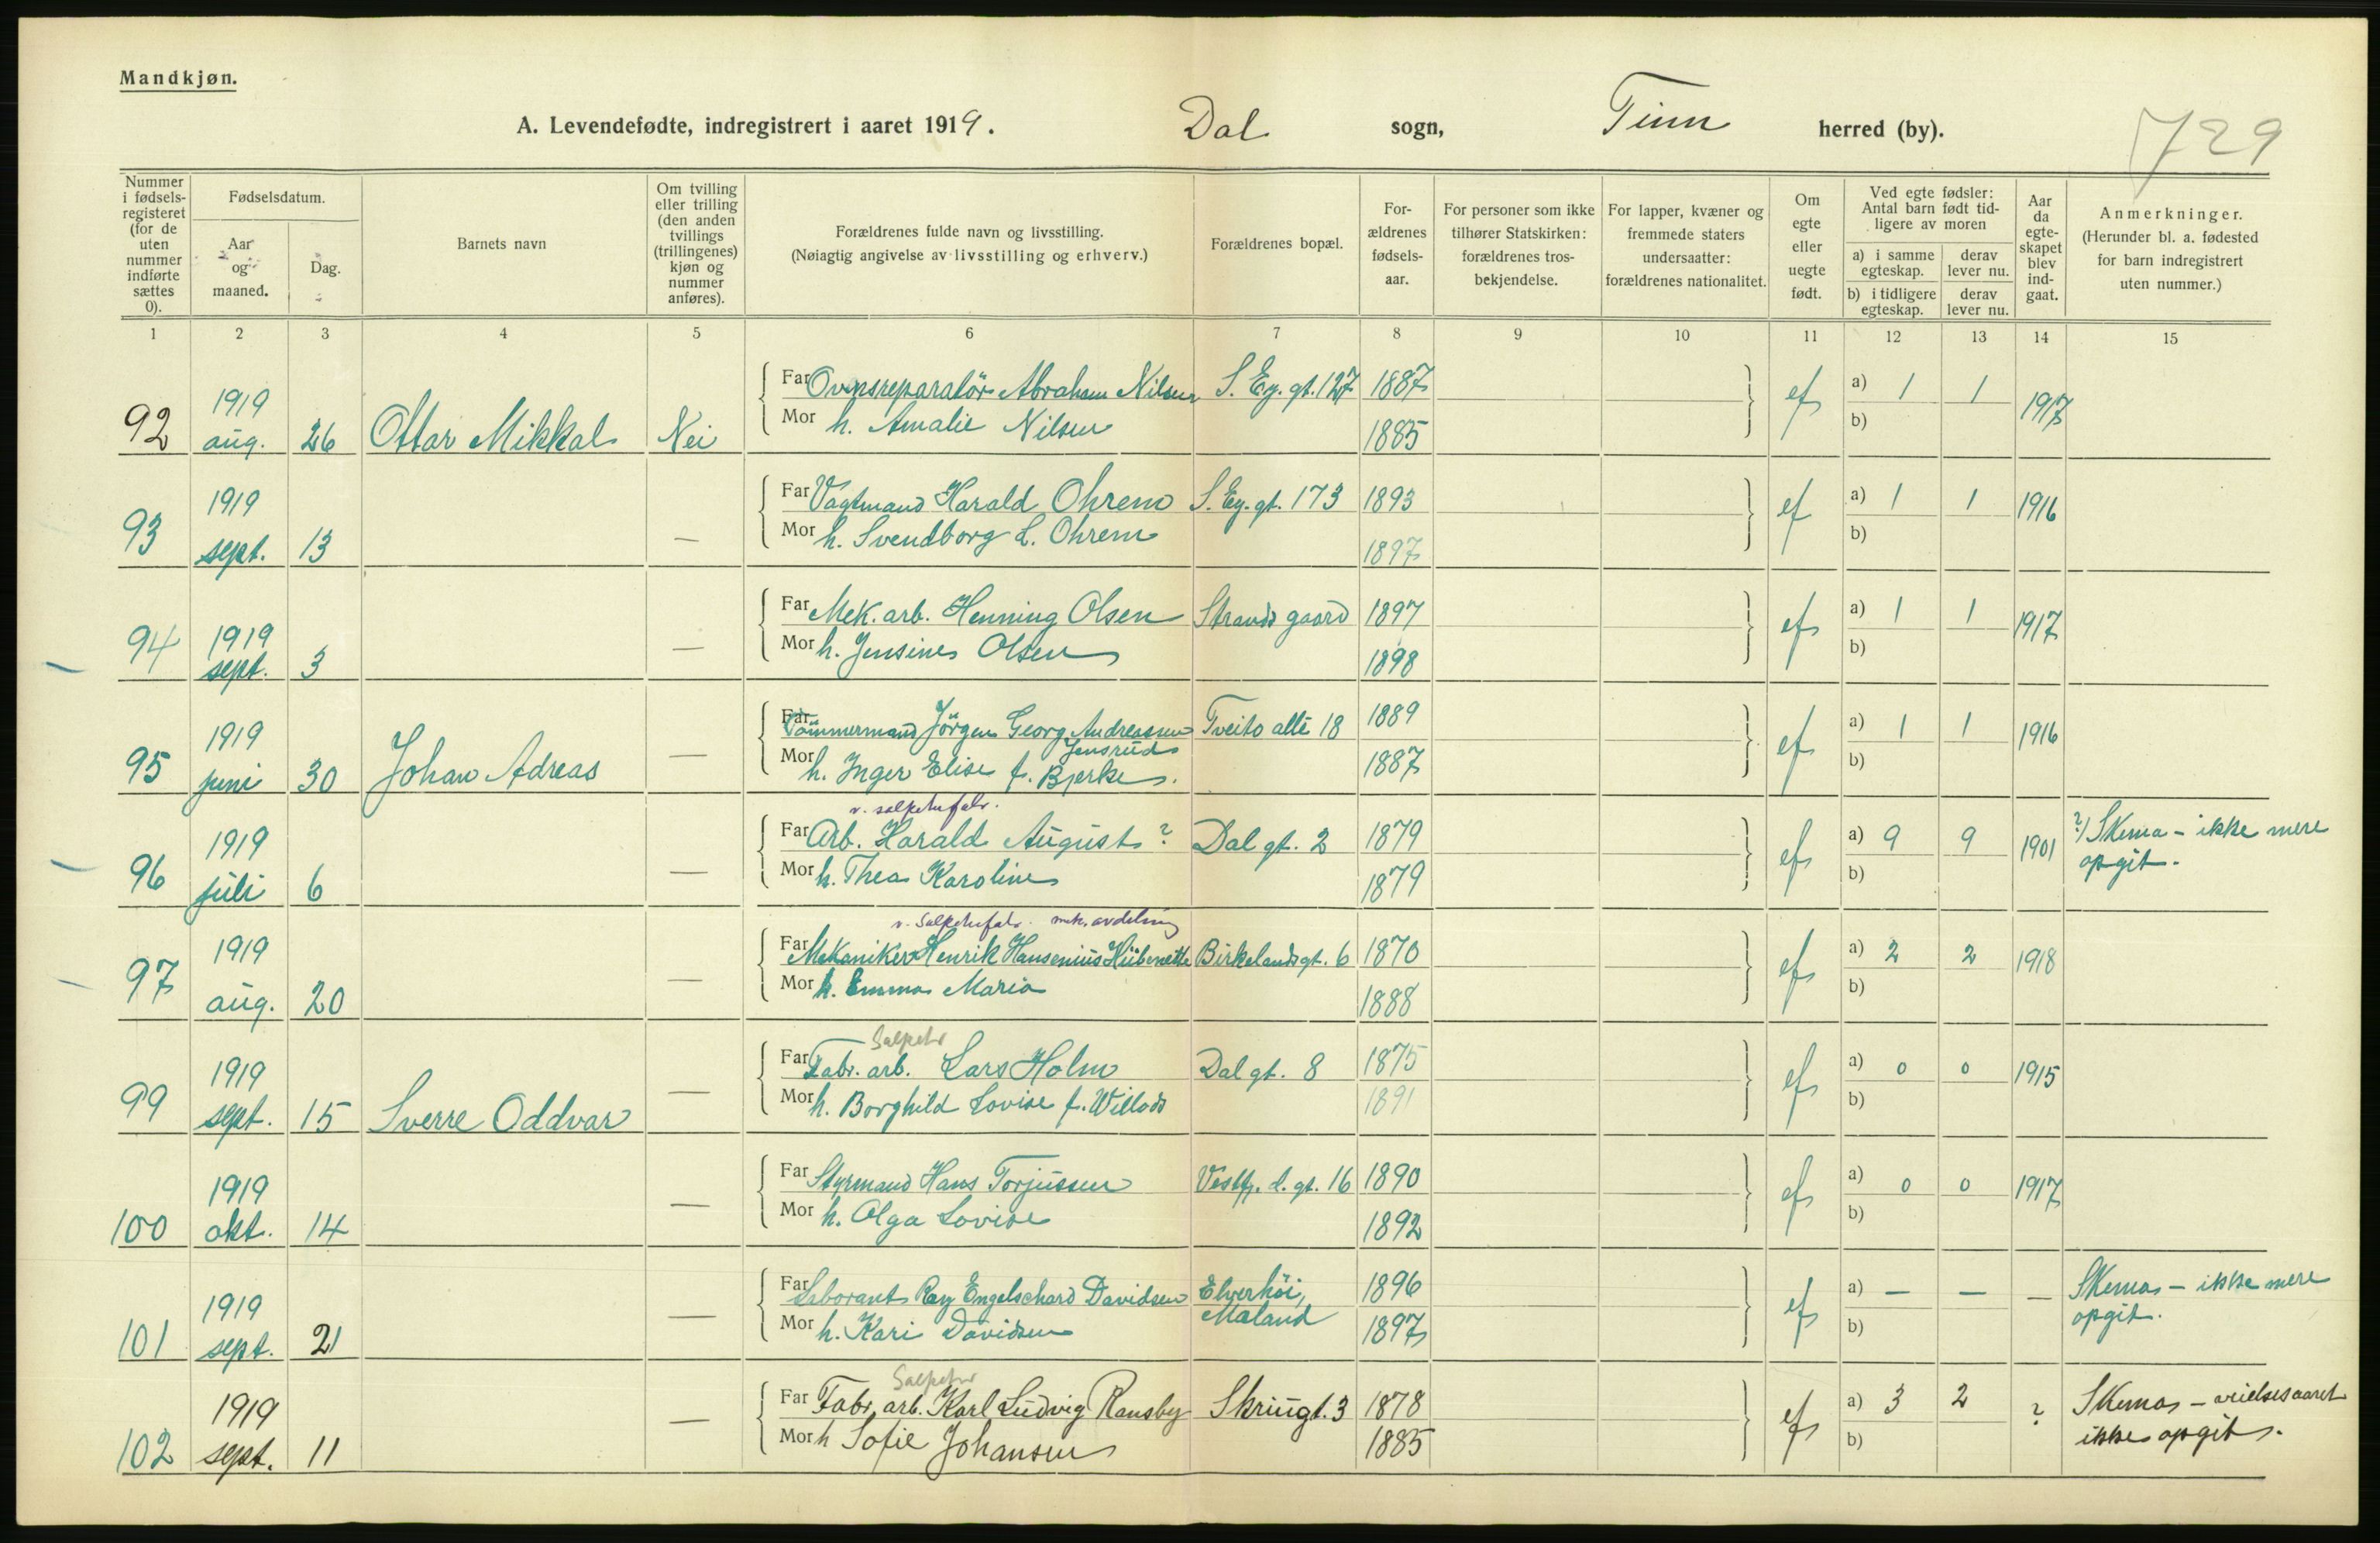 Mandkjøn.
A. Levendefødte, indregistrert i aaret 1919. Dal sogn, Tinn herred (by).
729
Nummer i fødselsregisteret (for de uten nummer indførte sættes 0).
Fødselsdatum.
Aar og maaned.
Dag.
Barnets navn
Om tvilling eller trilling (den anden tvillings (trillingenes) kjøn og nummer anføres).
Forældrenes fulde navn og livsstilling.
(Nøiagtig angivelse av livsstilling og erhverv.)
Forældrenes bopæl.
Forældrenes fødselsaar.
For personer som ikke tilhører Statskirken: forældrenes trosbekjendelse.
For lapper, kvæner og fremmede staters undersaatter: forældrenes nationalitet.
Om egte eller uegte født.
Ved egte fødsler: Antal barn født tidligere av moren
a) i samme egteskap. derav lever nu.
b) i tidligere egteskap. derav lever nu.
Aar da egteskapet blev indgaat.
Anmerkninger.
(Herunder bl. a. fødested for barn indregistrert uten nummer.)
1 2 3 4 5 6 7 8 9 10 11 12 13 14 15
Far Ovnsreparatör Abraham Nilsen S. Ey. gt. 127 1887 a) 1 1
92 1919 aug. 26 Ottar Mikkal Nei ef 1917
Mor h. Amalie Nilsen 1885 b)
Far Vagtmand Harald Ohrem S. Ey. gt. 173 1893 a) 1 1
93 1919 sept. 13 — ef 1916
Mor h. Svendborg L. Ohrem 1897 b)
Far Mek. arb. Henning Olsen Strands gaard 1897 a) 1 1
94 1919 sept. 3 — ef 1917
Mor h. Jensine Olsen 1898 b)
Far Tömmermand Jörgen Georg Andreassen Jensrud Tveito allé 18 1889 a) 1 1
95 1919 juni 30 Johan Adreas — ef 1916
Mor h. Inger Elise f. Bjerke. 1887 b)
v. salpeterfabr.
Far Arb. Harald August ? Dal gt. 2 1879 a) 9 9 ?) Skema – ikke mere
96 1919 juli 6 — ef 1901 opgit.
Mor h. Thea Karoline 1879 b)
v. Salpeterfabr. mek. avdeling
Far Mekaniker Henrik Hansenius Hübenette Birkelandsgt. 6 1870 a) 2 2
97 1919 aug. 20 — ef 1918
Mor h. Emma Maria 1888 b)
Salpeter
Far Fabr. arb. Lars Holm Dal gt. 8 1875 a) 0 0
99 1919 sept. 15 Sverre Oddvar — ef 1915
Mor h. Borghild Lovise f. Willads 1891 b)
Far Styrmand Hans Torjussen Vestfj. d. gt. 16 1890 a) 0 0
100 1919 okt. 14 — ef 1917
Mor h. Olga Lovise 1892 b)
Far Laborant Ray Engelschard Davidsen Elverhöi, Mæland 1896 a) — — Skema – ikke mere
101 1919 sept. 21 — ef — opgit.
Mor h. Kari Davidsen 1897 b)
Salpeter
Far Fabr. arb. Karl Ludvig Ransby Skriugt. 3 1878 a) 3 2 Skema – vielsesaaret
102 1919 sept. 11 — ef ? ikke opgit.
Mor h Sofie Johansen 1885 b)